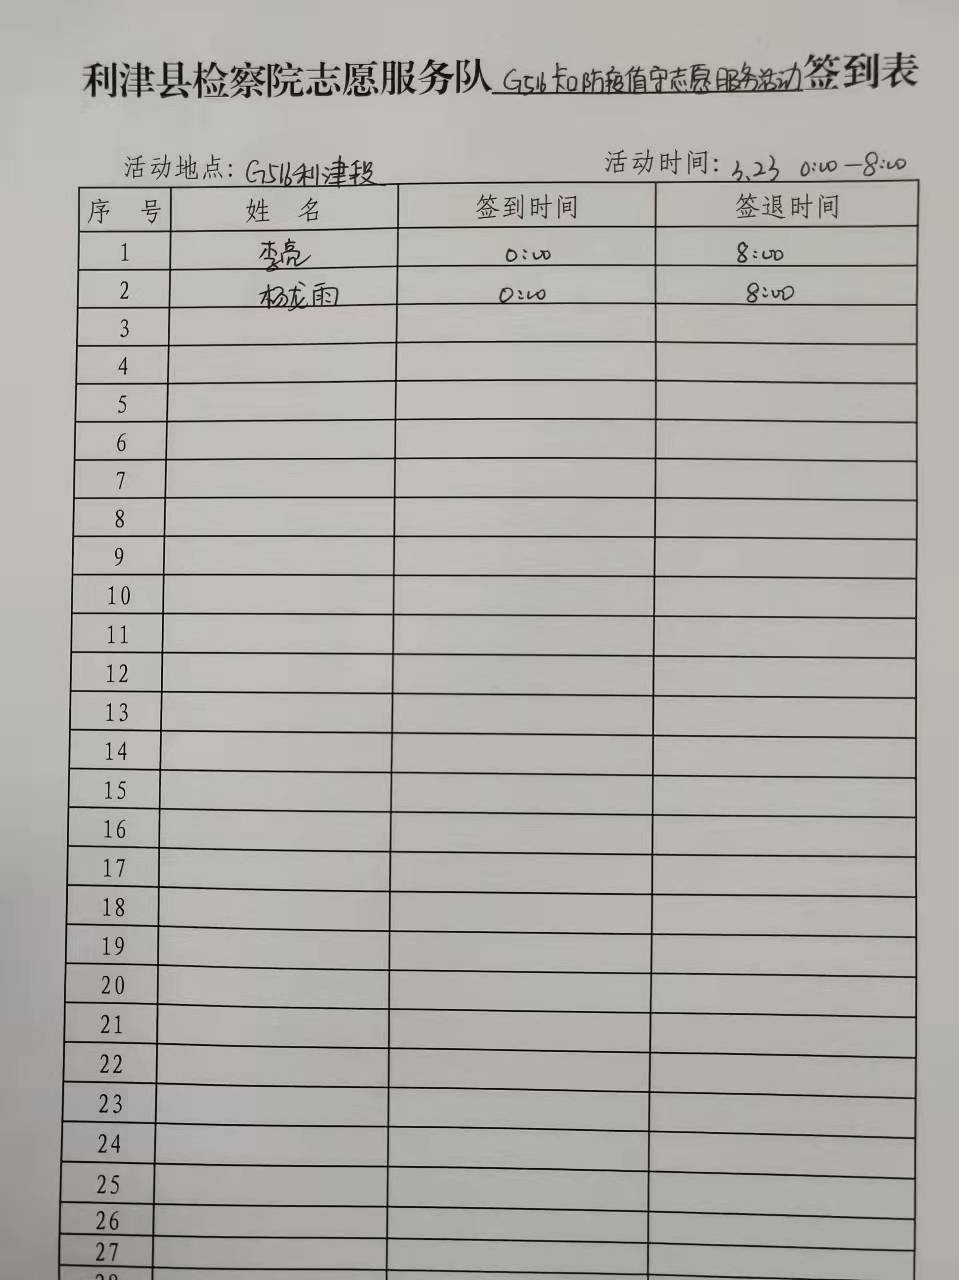 利津县检察院志愿服务队G516卡口防疫值守志愿服务活动签到表
活动地点：G516利津段 活动时间：3.23 0:00—8:00
序 号 姓 名 签到时间 签退时间
1 李亮 0:00 8:00
2 杨龙雨 0:00 8:00
3
4
5
6
7
8
9
10
11
12
13
14
15
16
17
18
19
20
21
22
23
24
25
26
27
28